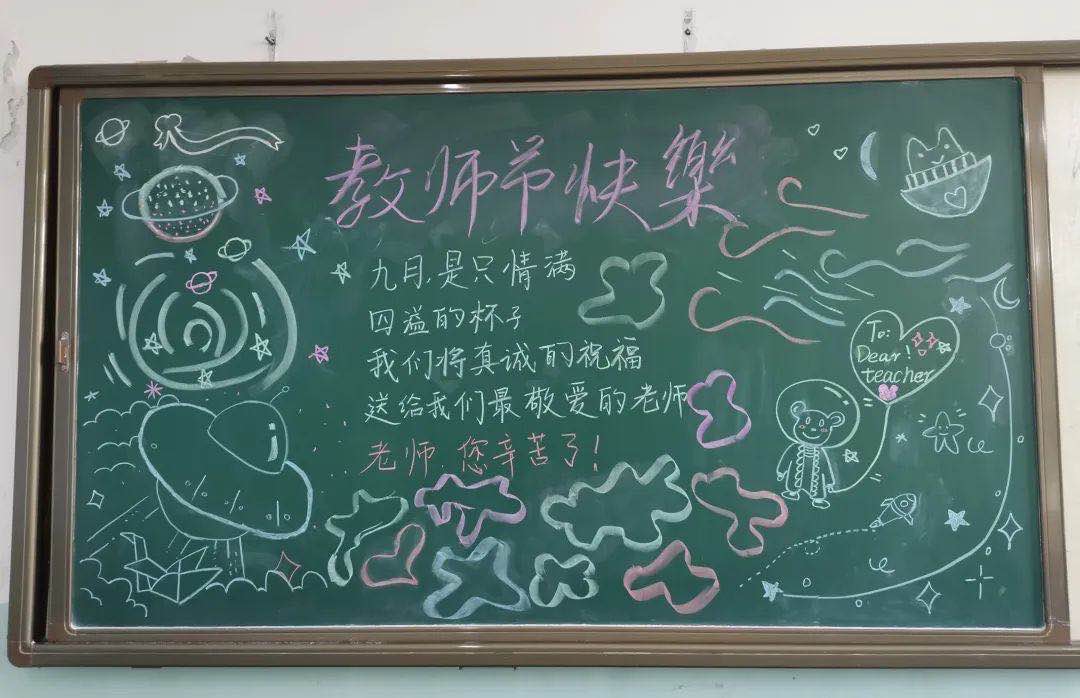 教师节快樂
九月,是只情满
四溢的杯子
我们将真诚的祝福
送给我们最敬爱的老师
老师 您辛苦了!
To:
Dear!
teacher